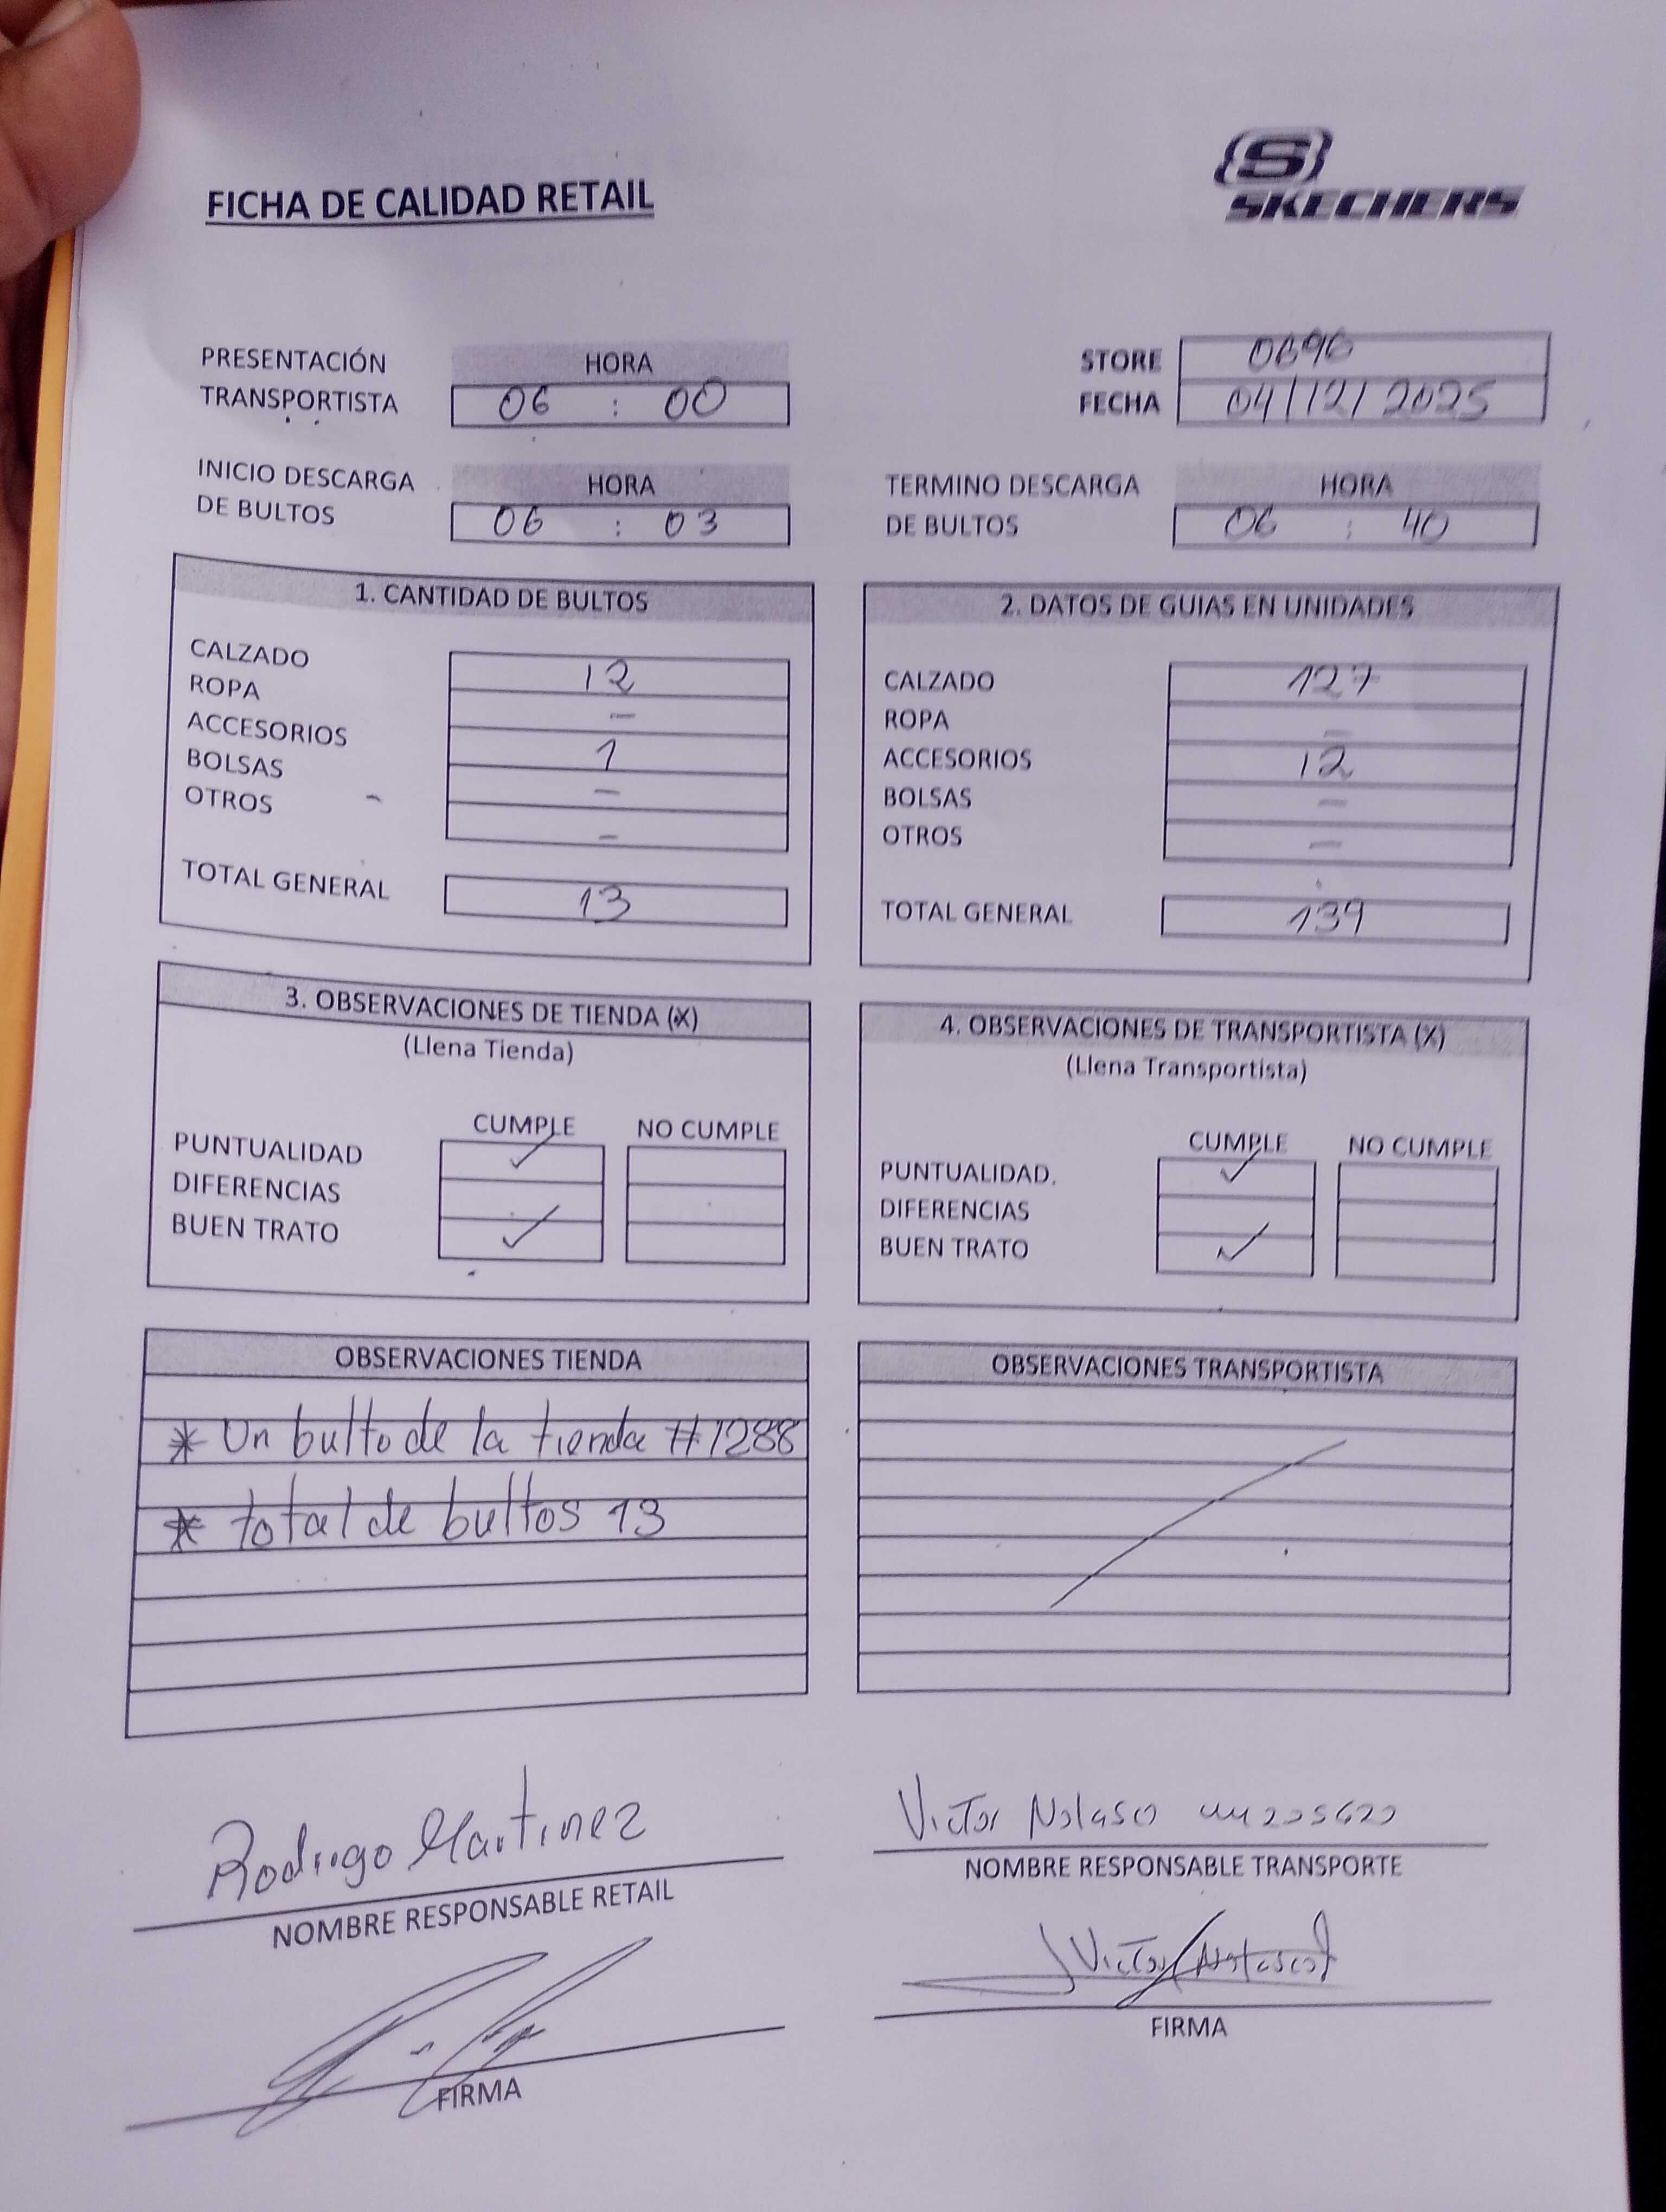 FICHA DE CALIDAD RETAIL
{S}
SKECHERS
PRESENTACIÓN TRANSPORTISTA
HORA
06 : 00
STORE 0696
FECHA 04/12/2025
INICIO DESCARGA DE BULTOS
HORA
06 : 03
TERMINO DESCARGA DE BULTOS
HORA
06 : 40
1. CANTIDAD DE BULTOS
CALZADO 12
ROPA -
ACCESORIOS 1
BOLSAS -
OTROS -
TOTAL GENERAL 13
2. DATOS DE GUIAS EN UNIDADES
CALZADO 127
ROPA -
ACCESORIOS 12
BOLSAS -
OTROS -
TOTAL GENERAL 139
3. OBSERVACIONES DE TIENDA (X)
(Llena Tienda)
CUMPLE NO CUMPLE
PUNTUALIDAD ✓
DIFERENCIAS
BUEN TRATO ✓
4. OBSERVACIONES DE TRANSPORTISTA (X)
(Llena Transportista)
CUMPLE NO CUMPLE
PUNTUALIDAD. ✓
DIFERENCIAS
BUEN TRATO ✓
OBSERVACIONES TIENDA
* Un bulto de la tienda #1288
* total de bultos 13
OBSERVACIONES TRANSPORTISTA
Rodrigo Martinez
NOMBRE RESPONSABLE RETAIL
FIRMA
Victor Nolasco
NOMBRE RESPONSABLE TRANSPORTE
Victor Nolasco
FIRMA